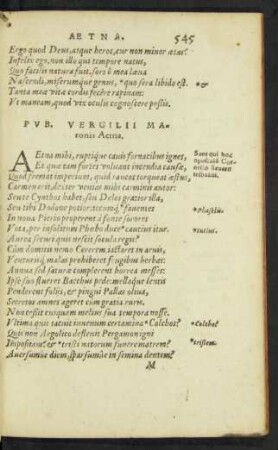 AETNA. 545
Ergo quod Deus, atque heros, cur non minor ætas?
Infelix ego, non illo qui tempore natus,
Quo facilis natura fuit. sors ô mea læua
Nascendi, miserumque genus, * quo sera libido est.
Tanta mea vita cordis fecere rapinam:
Vt maneam, quod vix oculis cognoscere possis.
PVB. VERGILII MA-
ronis Aetna.
AEtna mihi, ruptique cauis fornacibus ignes,
Et quæ tam fortes voluant incendia causæ,
Quid fremat imperium, quid raucos torqueat æstus,
Carmen erit, dexter venias mihi carminis autor:
Seu te Cynthos habet, seu Delos gratior illa,
Seu tibi Dodone potior: tecumque * fauentes
In noua Pierio properent à fonte sorores
Vota, per insolitum Phœbo duce * cautius itur.
Aurea securi quis nescit secula regis?
Cum domitis nemo Cererem iactaret in aruis,
Venturisque malas prohiberet frugibus herbas:
Annua sed saturæ complerent horrea messes:
Ipse suo flueret Bacchus pede: mellaque lentis
Penderent folijs, & pingui Pallas oliua,
Secretos amnes ageret cum gratia ruris.
Non cessit cuiquam melius sua tempora nosse.
Vltima quis tacuit iuuenum certamina * Colchos?
Qui non Argolico defleuit Pergamon igni
Impositam? & * tristi natorum funere matrem?
Auersumue diem, sparsumue in semina dentem?
Sunt qui hoc
* Phœbus
* tutius.
* Colchos
* tristem
M